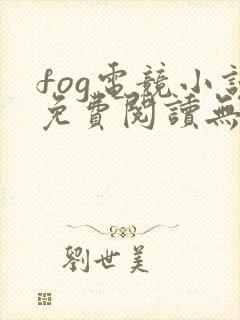 fog電競小說
免費閱讀無
劉世美